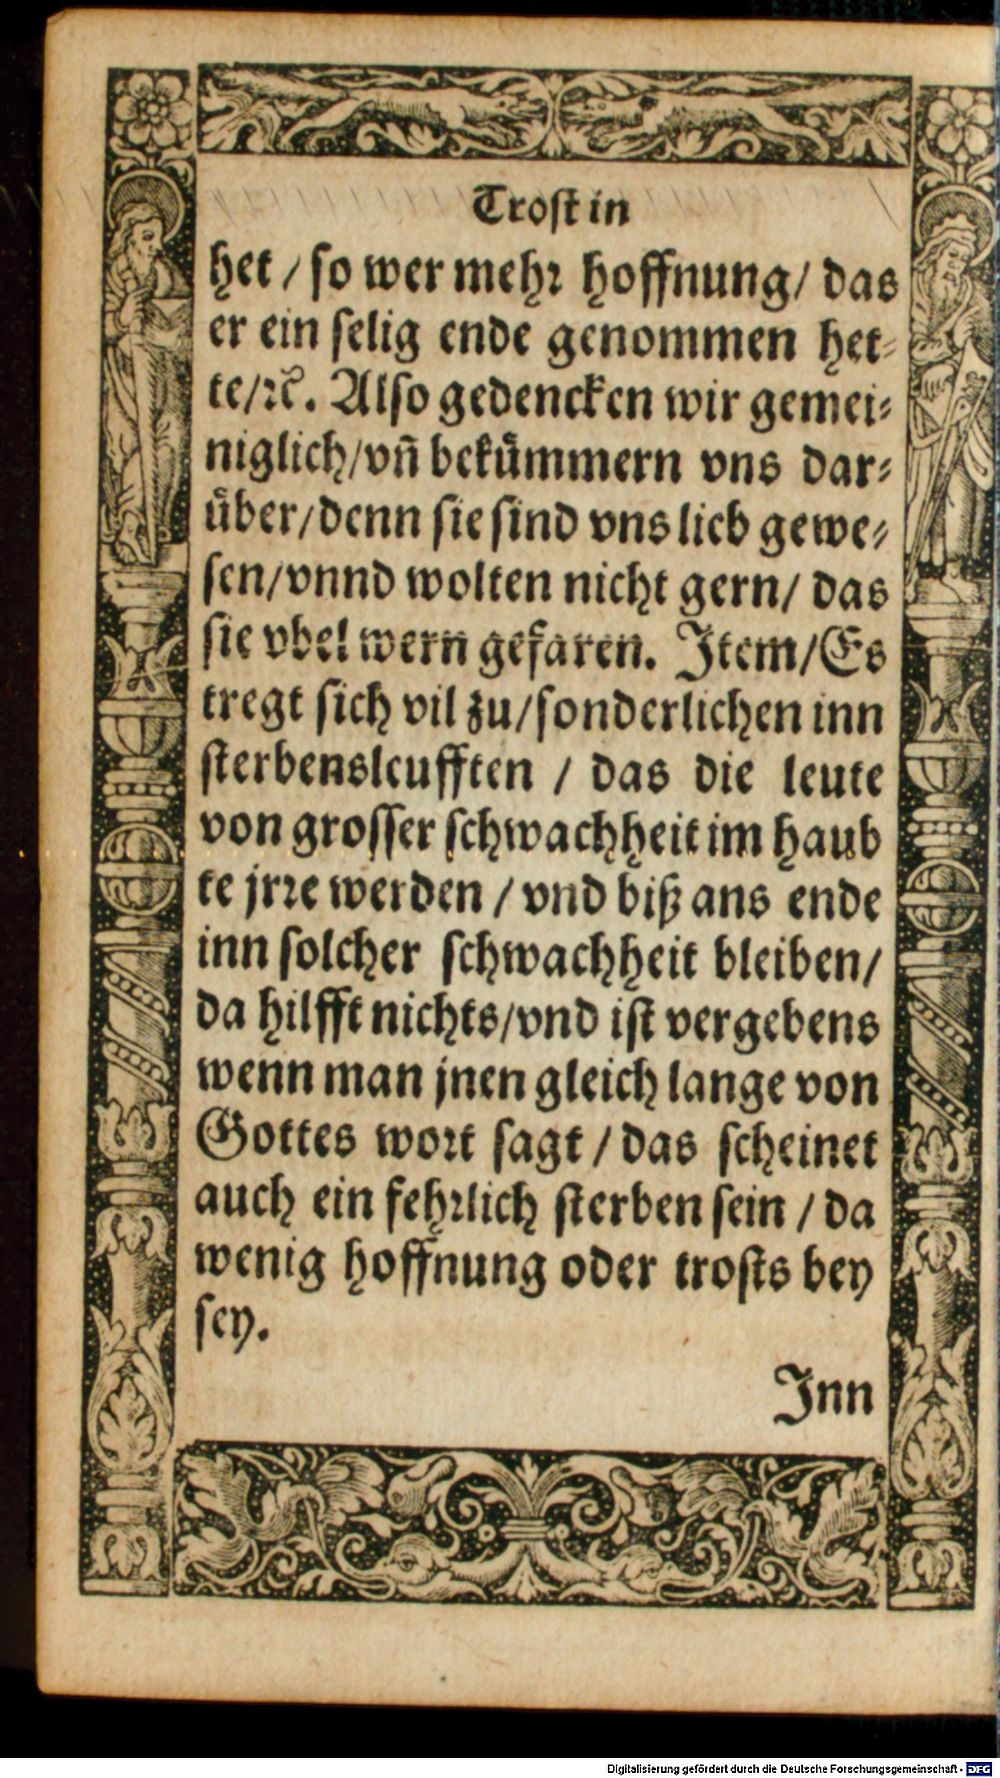 Trost in
het / so wer mehr hoffnung / das
er ein selig ende genommen het⸗
te /ꝛc̃. Also gedencken wir gemei⸗
niglich / vñ bekuͤmmern vns dar⸗
uͤber / denn sie sind vns lieb gewe⸗
sen / vnnd wolten nicht gern / das
sie vbel wern gefaren. Item / Es
tregt sich vil zu / sonderlichen inn
sterbensleufften / das die leute
von grosser schwachheit im haub
te jrre werden / vnd biß ans ende
inn solcher schwachheit bleiben /
da hilfft nichts / vnd ist vergebens
wenn man jnen gleich lange von
Gottes wort sagt / das scheinet
auch ein fehrlich sterben sein / da
wenig hoffnung oder trosts bey
sey.
Inn
Digitalisierung gefördert durch die Deutsche Forschungsgemeinschaft - DFG